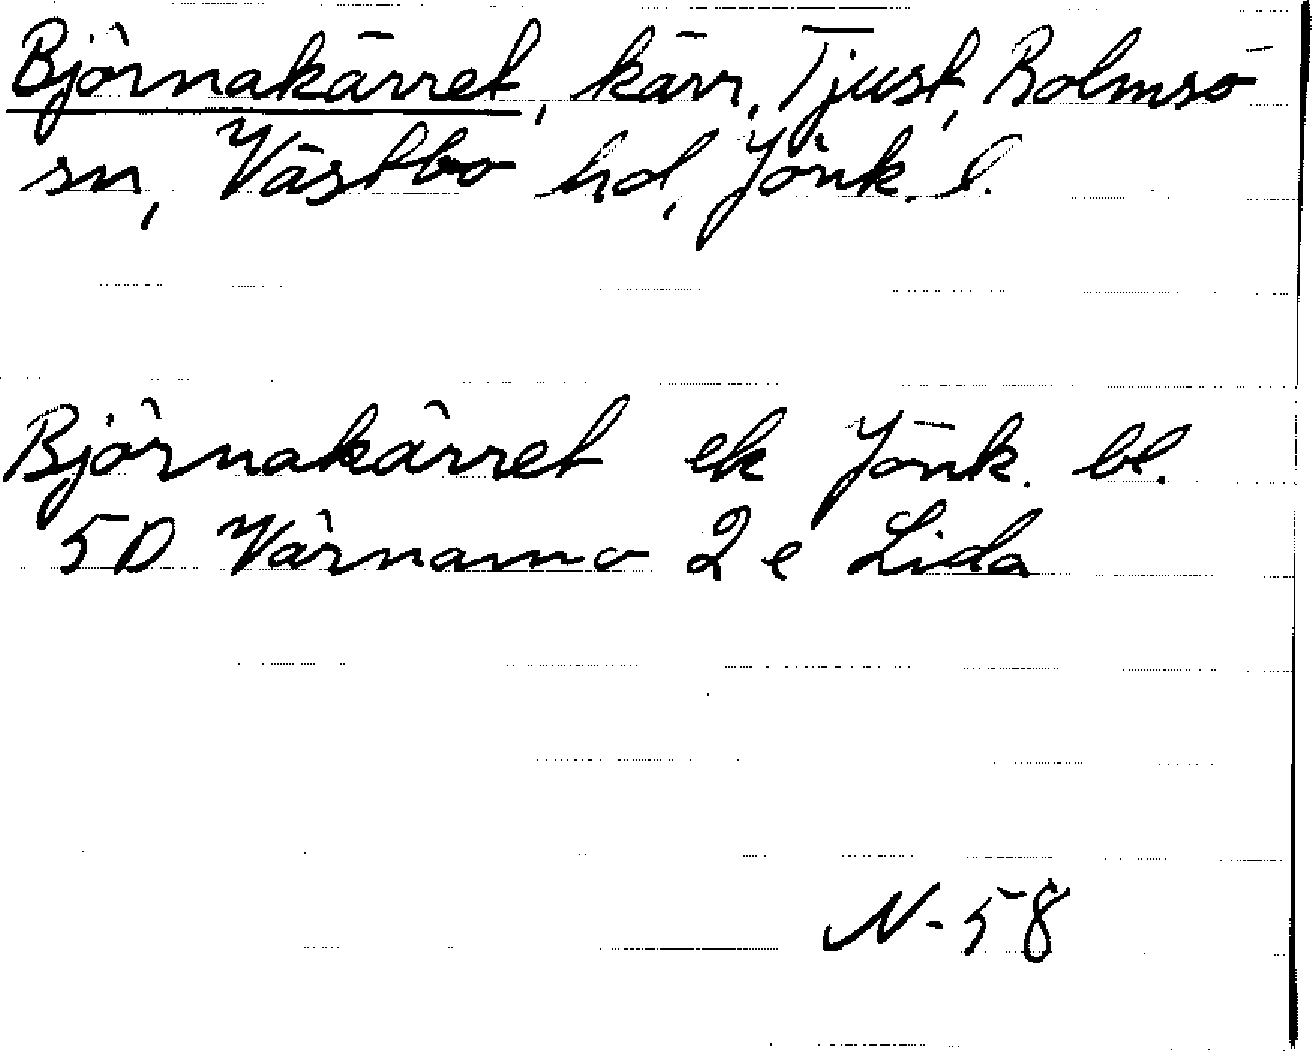 Björnakärret, kärr, Tjust, Bolmsö
sn, Västbo hd, Jönk. l.
Björnakärret ek Jönk. bl.
5D Värnamo 2 e Lida
N-58